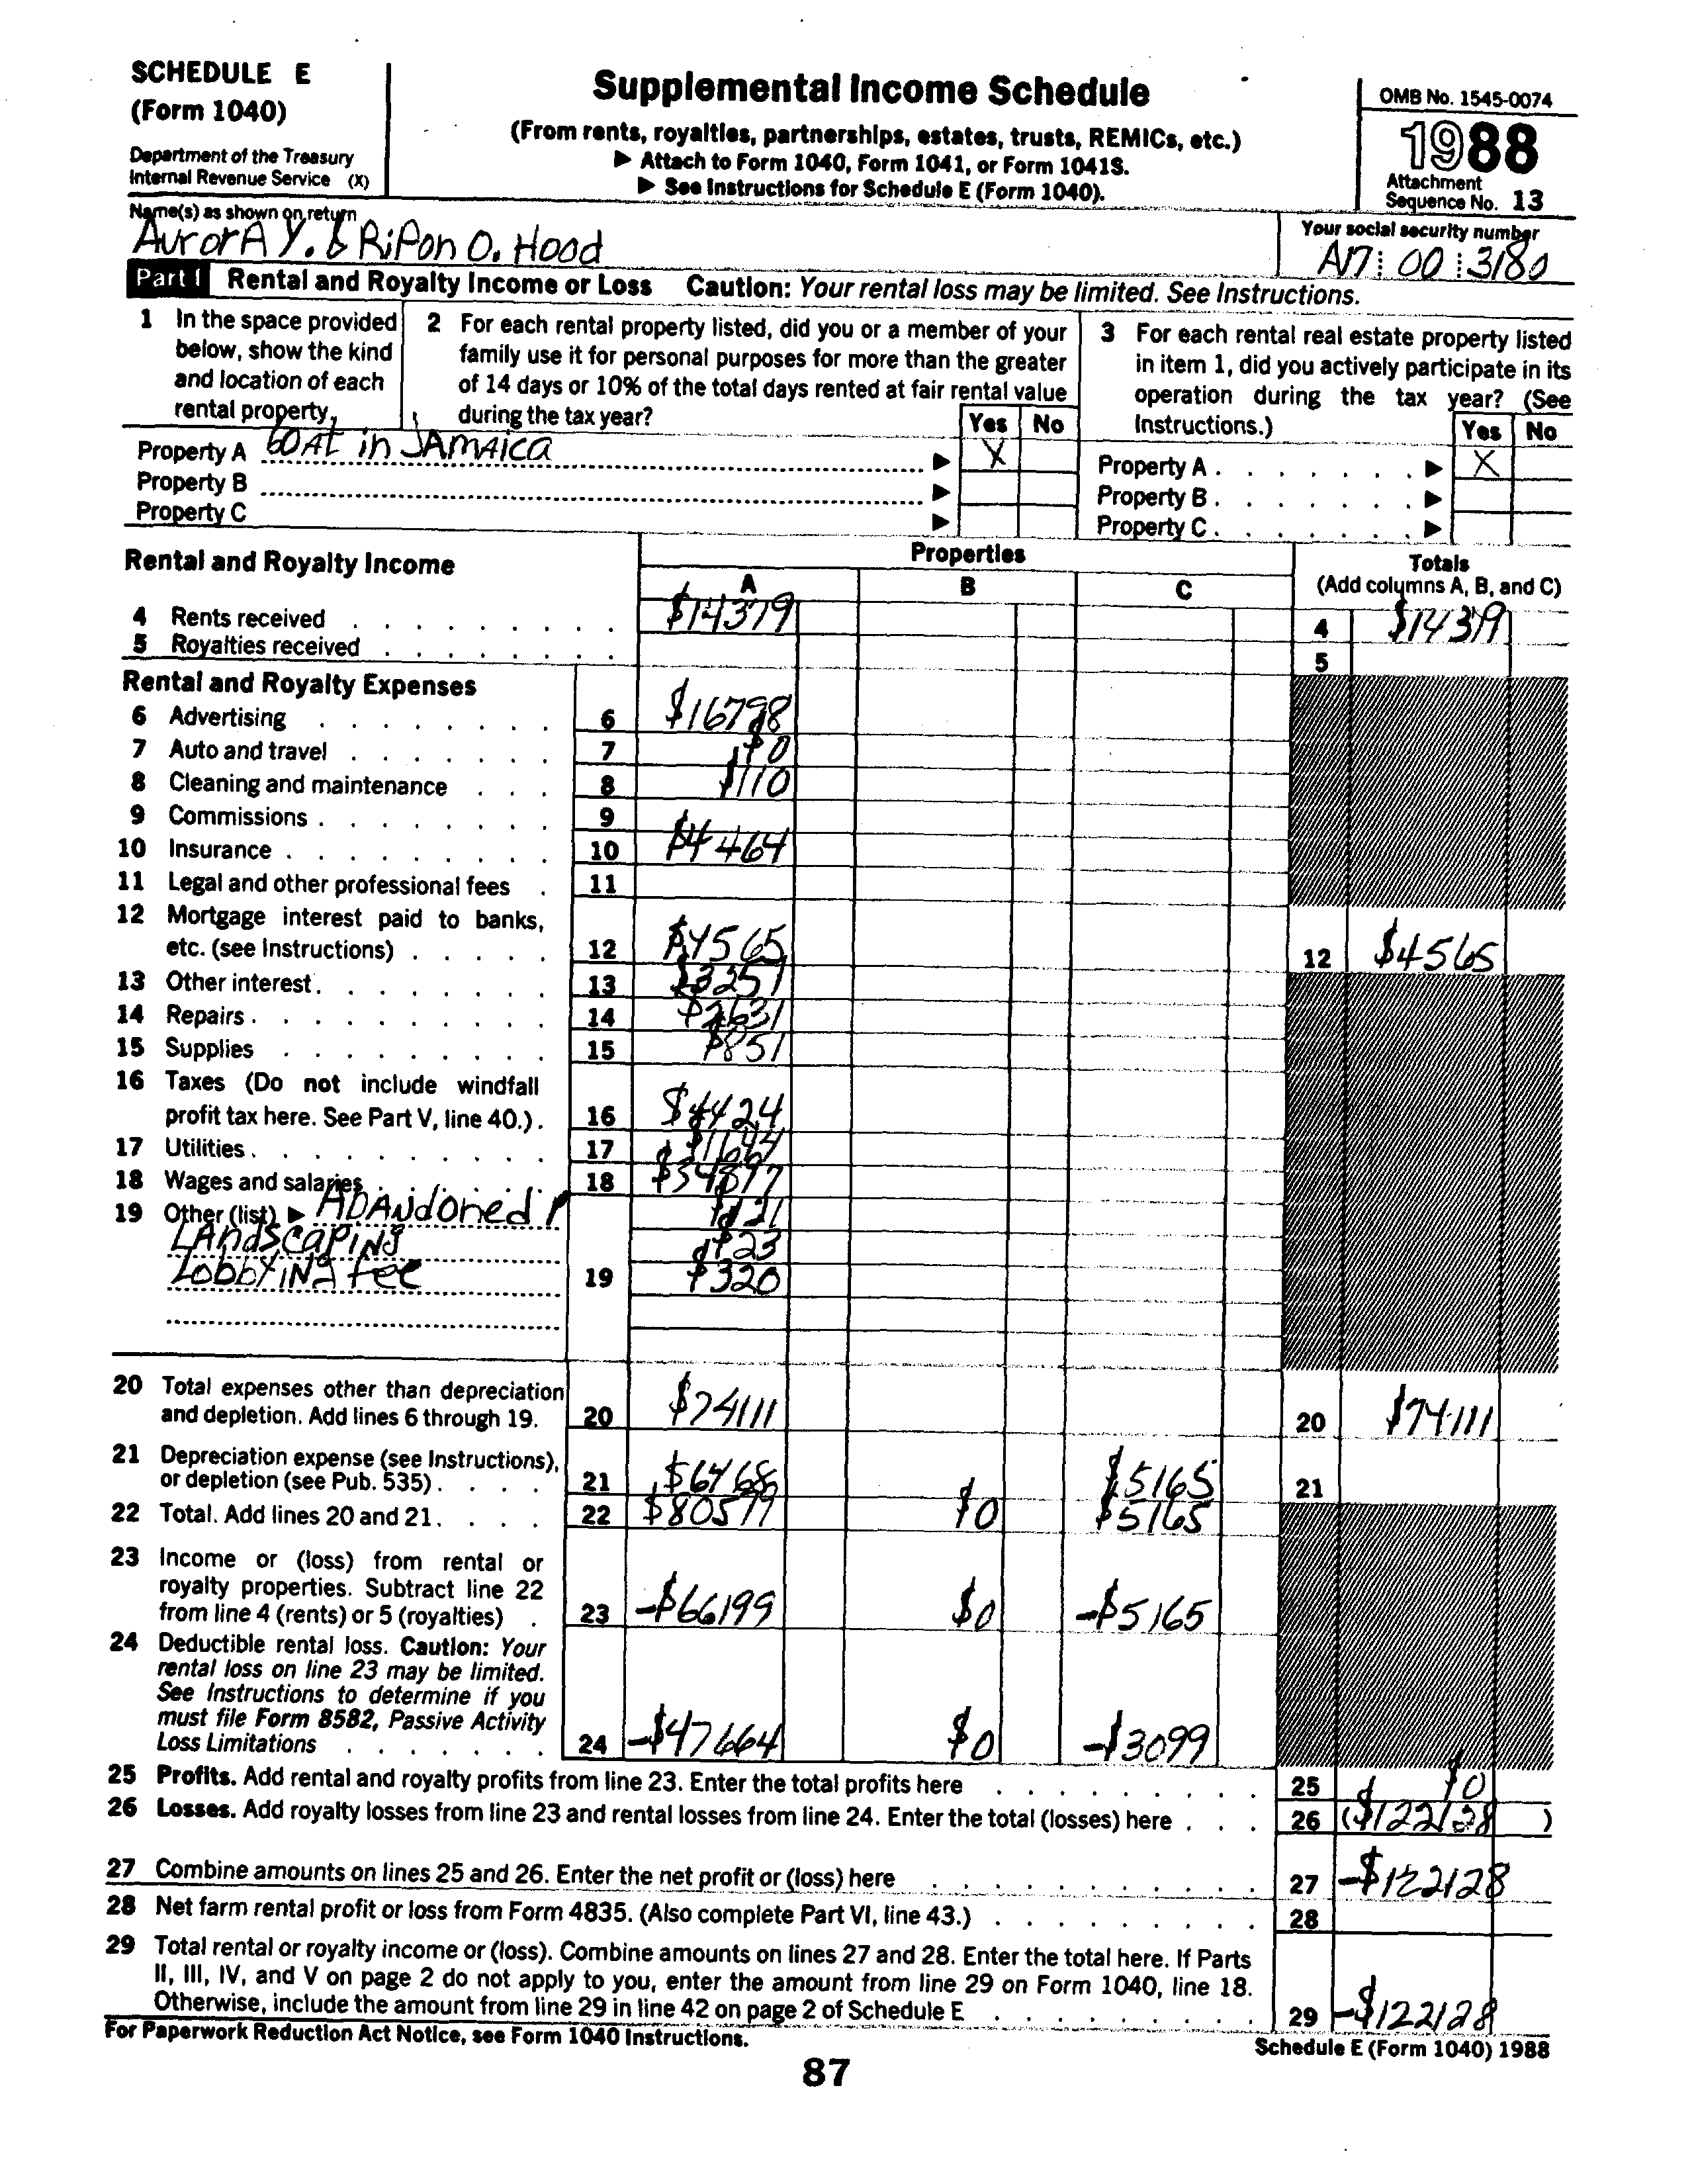 SCHEDULE E
(Form 1040)
Department of the Treasury
Internal Revenue Service (X)
Supplemental Income Schedule
(From rents, royalties, partnerships, estates, trusts, REMICs, etc.)
▶ Attach to Form 1040, Form 1041, or Form 1041S.
▶ See Instructions for Schedule E (Form 1040).
OMB No. 1545-0074
1988
Attachment
Sequence No. 13
Name(s) as shown on return
AurorA Y. & RiPon O. Hood
Your social security number
A17 00 3180
Part I Rental and Royalty Income or Loss Caution: Your rental loss may be limited. See Instructions.
1 In the space provided
below, show the kind
and location of each
rental property.
2 For each rental property listed, did you or a member of your
family use it for personal purposes for more than the greater
of 14 days or 10% of the total days rented at fair rental value
during the tax year?
Yes No
3 For each rental real estate property listed
in item 1, did you actively participate in its
operation during the tax year? (See
Instructions.)
Yes No
Property A in JAMAICA ▶ X
Property B ▶
Property C ▶
Property A . . . . . . . ▶ X
Property B . . . . . . . ▶
Property C . . . . . . . ▶
Rental and Royalty Income
Properties
A B C
Totals
(Add columns A, B, and C)
4 Rents received $14379 4 $14379
5 Royalties received 5
Rental and Royalty Expenses
6 Advertising 6 $16798
7 Auto and travel 7 $0
8 Cleaning and maintenance 8 $110
9 Commissions 9
10 Insurance 10 $4464
11 Legal and other professional fees 11
12 Mortgage interest paid to banks,
etc. (see Instructions) 12 $4565 12 $4565
13 Other interest 13 $3251
14 Repairs 14 $2631
15 Supplies 15 $851
16 Taxes (Do not include windfall
profit tax here. See Part V, line 40.) 16 $4424
17 Utilities 17 $1644
18 Wages and salaries 18 $34897
19 Other (list) ▶ ABANdoned P $121
LANdSCAPING $23
LobbYING fee 19 $320
20 Total expenses other than depreciation
and depletion. Add lines 6 through 19. 20 $74111 20 $74111
21 Depreciation expense (see Instructions),
or depletion (see Pub. 535) 21 $6468 $5165 21
22 Total. Add lines 20 and 21 22 $80579 $0 $5165
23 Income or (loss) from rental or
royalty properties. Subtract line 22
from line 4 (rents) or 5 (royalties) 23 -$66199 $0 -$5165
24 Deductible rental loss. Caution: Your
rental loss on line 23 may be limited.
See Instructions to determine if you
must file Form 8582, Passive Activity
Loss Limitations 24 -$47664 $0 -$3099
25 Profits. Add rental and royalty profits from line 23. Enter the total profits here 25 $0
26 Losses. Add royalty losses from line 23 and rental losses from line 24. Enter the total (losses) here 26 ($122128)
27 Combine amounts on lines 25 and 26. Enter the net profit or (loss) here 27 -$122128
28 Net farm rental profit or loss from Form 4835. (Also complete Part VI, line 43.) 28
29 Total rental or royalty income or (loss). Combine amounts on lines 27 and 28. Enter the total here. If Parts
II, III, IV, and V on page 2 do not apply to you, enter the amount from line 29 on Form 1040, line 18.
Otherwise, include the amount from line 29 in line 42 on page 2 of Schedule E 29 -$122128
For Paperwork Reduction Act Notice, see Form 1040 Instructions.
Schedule E (Form 1040) 1988
87